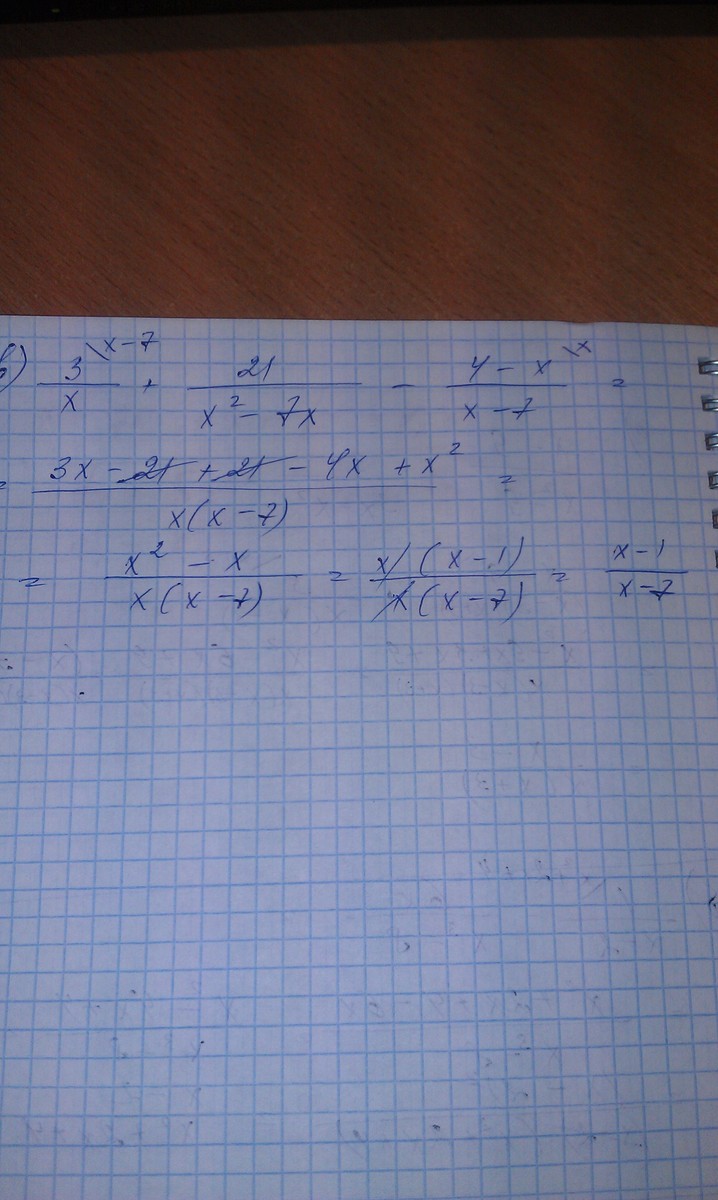 в) 3/x \x-7 + 21/(x² - 7x) - (4 - x)/(x - 7) \x =
= (3x - 21 + 21 - 4x + x²)/(x(x - 7)) =
= (x² - x)/(x(x - 7)) = x(x - 1)/(x(x - 7)) = (x - 1)/(x - 7)